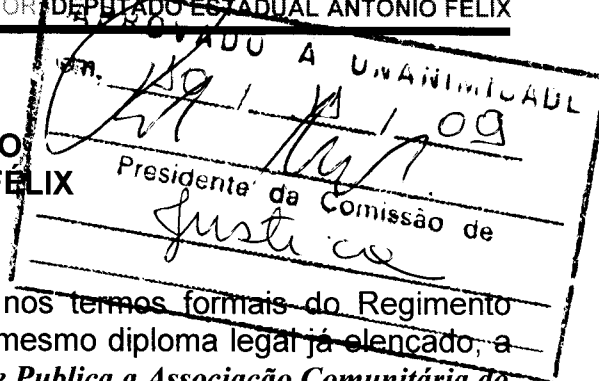 OR DEPUTADO ESTADUAL ANTONIO FELIX
APROVADO A UNANIMIDADE
Em, / / 09
O
FÉLIX
Presidente da Comissão de
Justiça
nos termos formais do Regimento
mesmo diploma legal já elencado, a
Publica a Associação Comunitária de